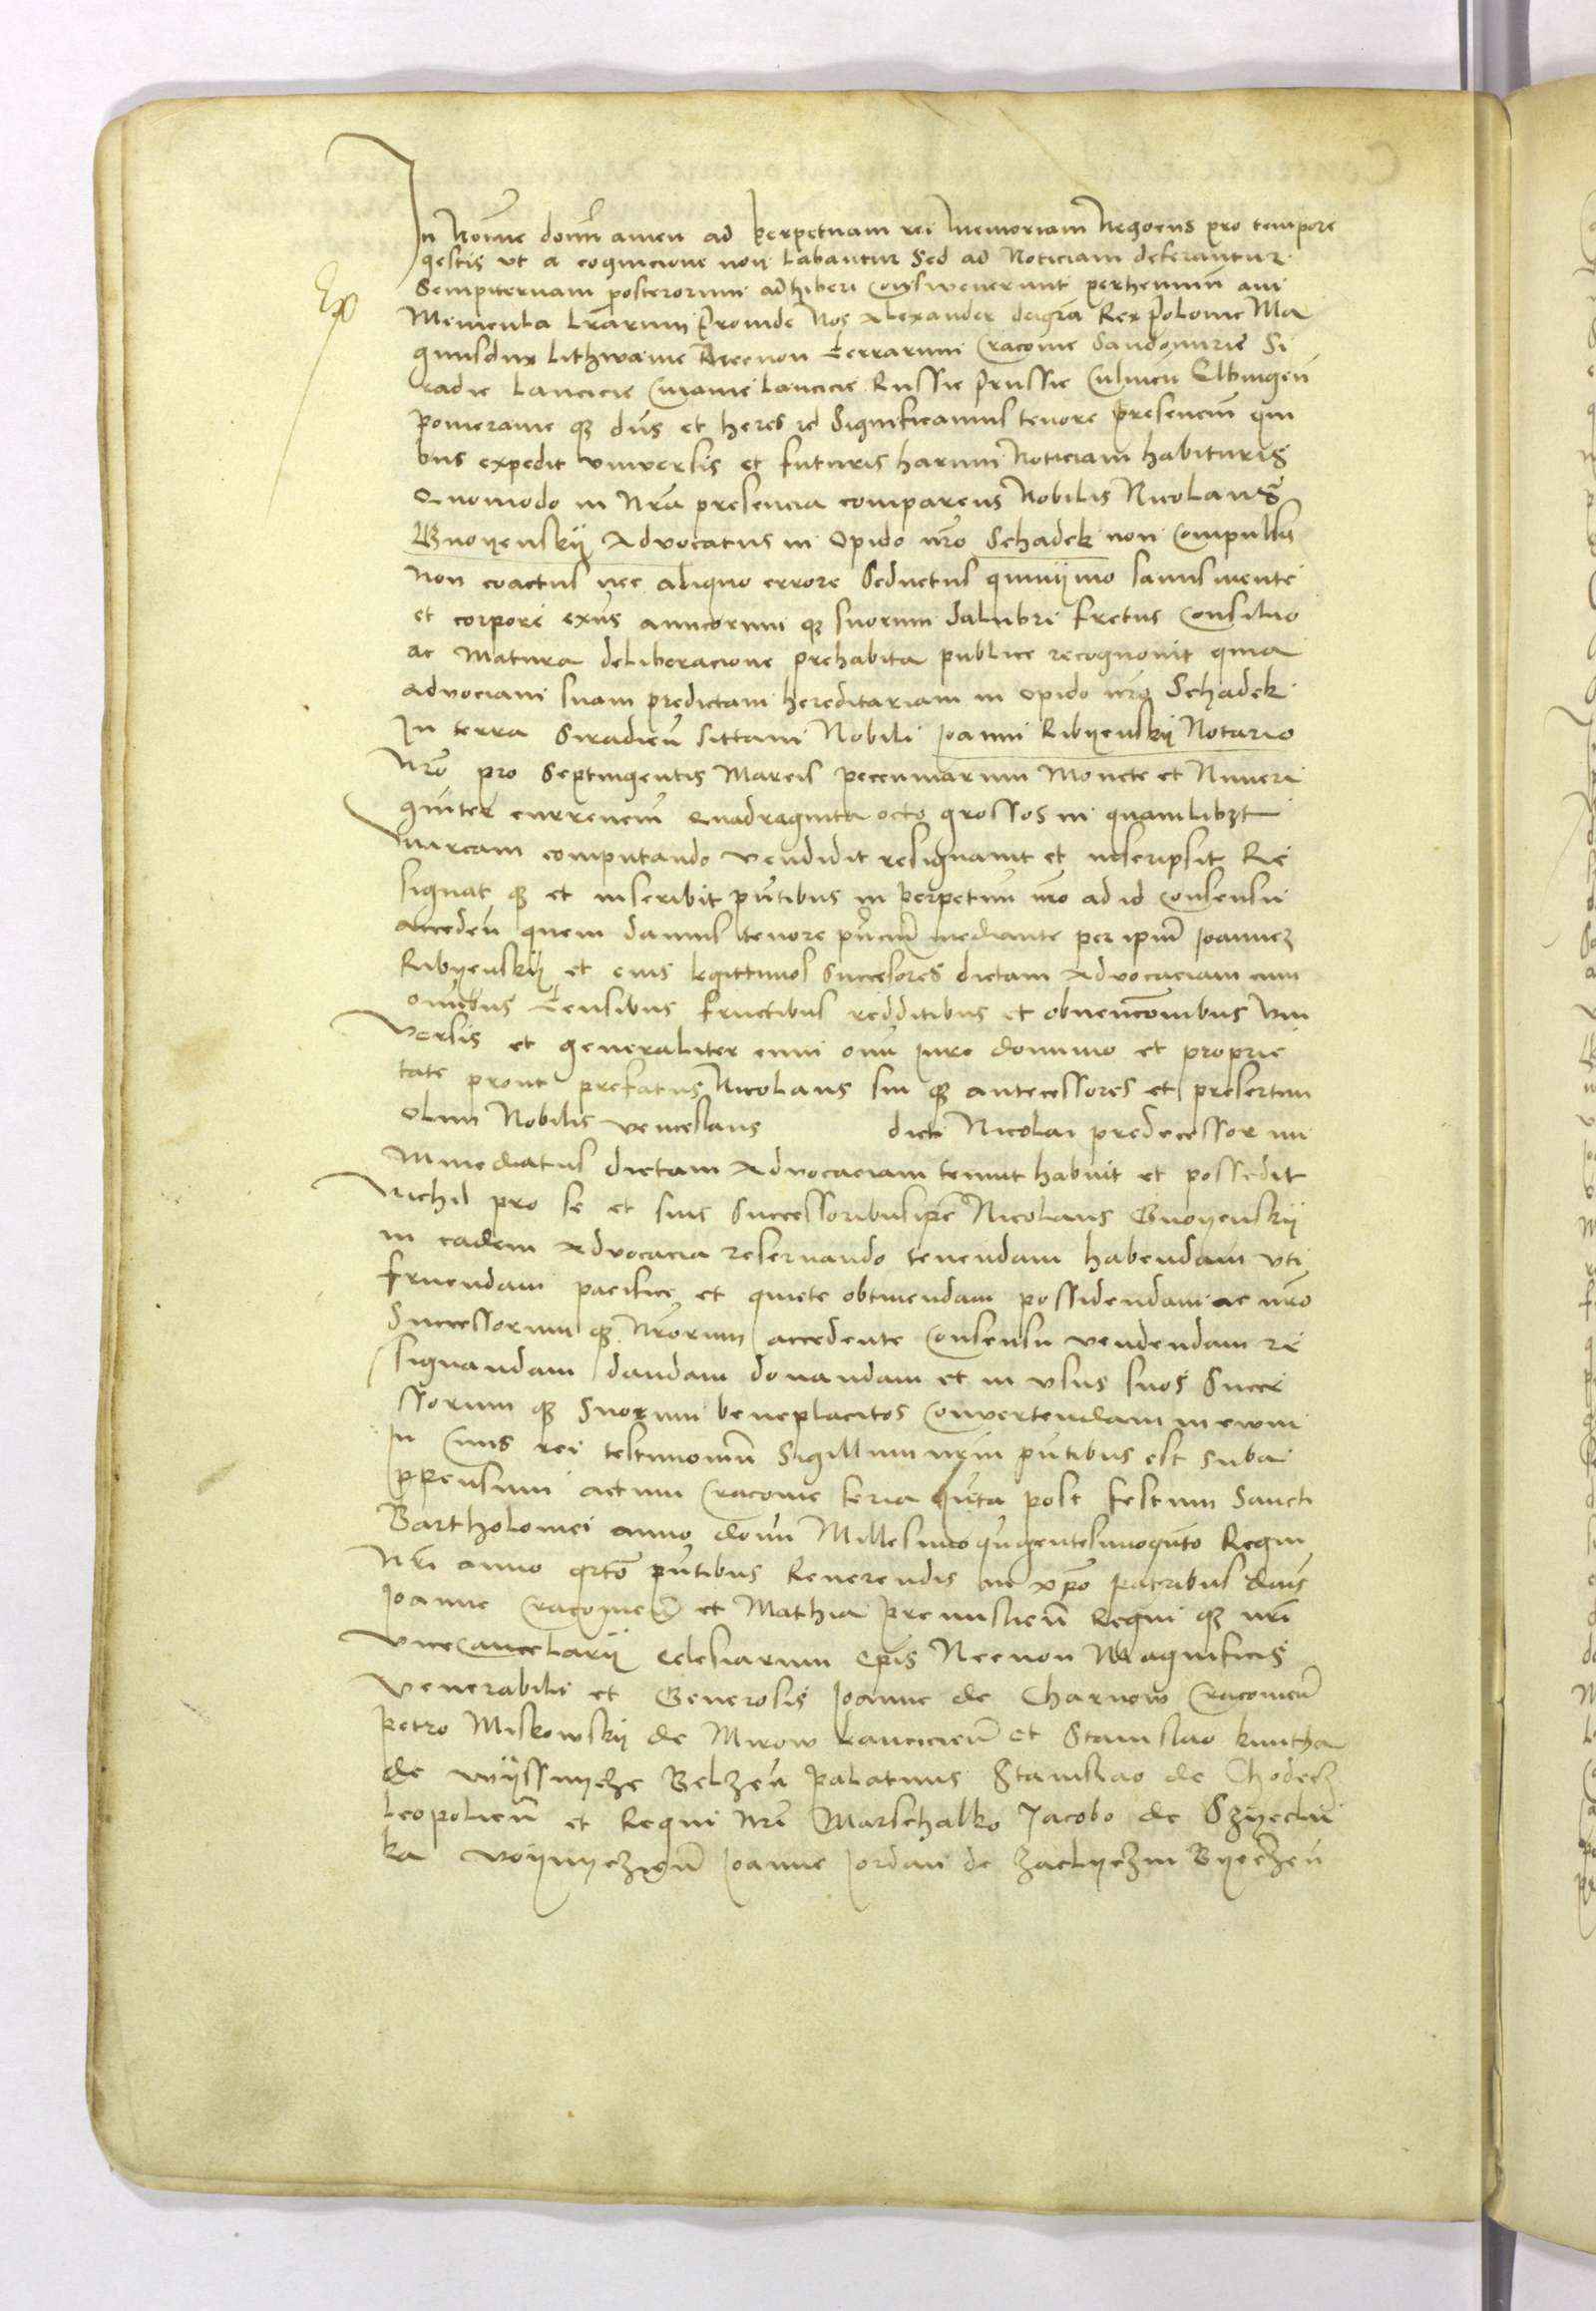 In Noīe domī amen ad perpetuam rei memoriam Negocys pro tempore
gestis ut a cognicione non labantur Sed ad Noticiam deferantur
Exp
Sempiternam posterorum adhiberi Consweuerunt perhennīn aui
Memenla lr̄arum Proinde Nos Alexander deigrā Rex Polonie Ma
gnusdux Lithwanie Necnon Terrarum Cracouie Sandomirie Si
radie Lancicie Cuiauie Lancicie Russie Prussie Culmeñ Elbingeñ
pomeranie qȝ dn̄s et heres rc̄ Significamus tenore presenciū qui
bus expedit vniuersis et futuris harum Noticiam habituris
Quomodo in nrā presencia comparens Nobilis Nicolaus
Gnoyenskij Aduocatus in Opido nr̄o Schadek non Compulsus
Non coactus nec aliquo errore Seductus quinijmo sanus mente
et corpore exn̄s amicorum qȝ suorum Salubri fretus Consilio
ac Matura deliberacione prehabita publice recognouit quia
aduociam suam predictam hereditariam in opido nr̄o Schadek
In terra Siradieñ sittam Nobili Joanni Ribyenskij Notario
Nr̄o pro Septingentis Marcis peccuniarum Monete et Numeri
quiter currenciū Quadraginta octo grossos in quamlibȝt
marcam computando vendidit resignauit et inscripsit Re
signat qȝ et inscribit pn̄tibus in perpetuū nr̄o ad id Consensu
accedeñ quem damus tenore pn̄ciū mediante per ipm̄ Joannez
Ribyenskij et eius legittimos Successores dictam Aduocaciam cum
om̄ibus Censibus fructibus redditibus et obuencōnibus vni
versis et generaliter cum om̄i iure dominio et proprie
tate prout prefatus Nicolaus sui qȝ antecessores et presertim
Olim Nobilis venceslaus dicti Nicolai predecessor im
Mmediatus dictam Aduocaciam tenuit habuit et possedit
Nichil pro se et suis Successoribus ip̄e Nicolaus Gnoyenskij
in eadem Aduocacia reseruando tenendam habendam vti
fruendam pacifice et quiete obtinendam possidendam ac nr̄o
Successorum qȝ Nr̄orum accedente Consensu vendendam re
signandam dandam donandam et in vsus suos Succe
ssorum qȝ Suorum beneplacitos Conuertendam in ewm
In Cuius rei testimoniū Sigillum nrm̄ pn̄tibus est suba
ppensum actum Cracouie feria quīta post festum Sancti
Bartholomei anno domī Millesimoquīgentesimoquīto Regni
Nr̄i anno qrto pn̄tibus Reuerendis in xpō patribus dn̄is
Joanne Cracouieñ et Mathia Premislieñ Regni qȝ nr̄i
Vicecancelarij Eclesiarum Ep̄is Necnon Magnificis
Venerabilis et Generosis Joanne de Tharnow Cracouieñ
Petro Miskowskij de Mirow Lancicieñ et Stanislao kmitha
de wyssnycze Belzeñ Palatinis Stanislao de Chodecz
Leopolieñ et Regni Nr̄i Marschalko Jacobo de Szyeclu
ka Voynyczieñ Joanne Jordan de Zaclyczin Byeczeñ